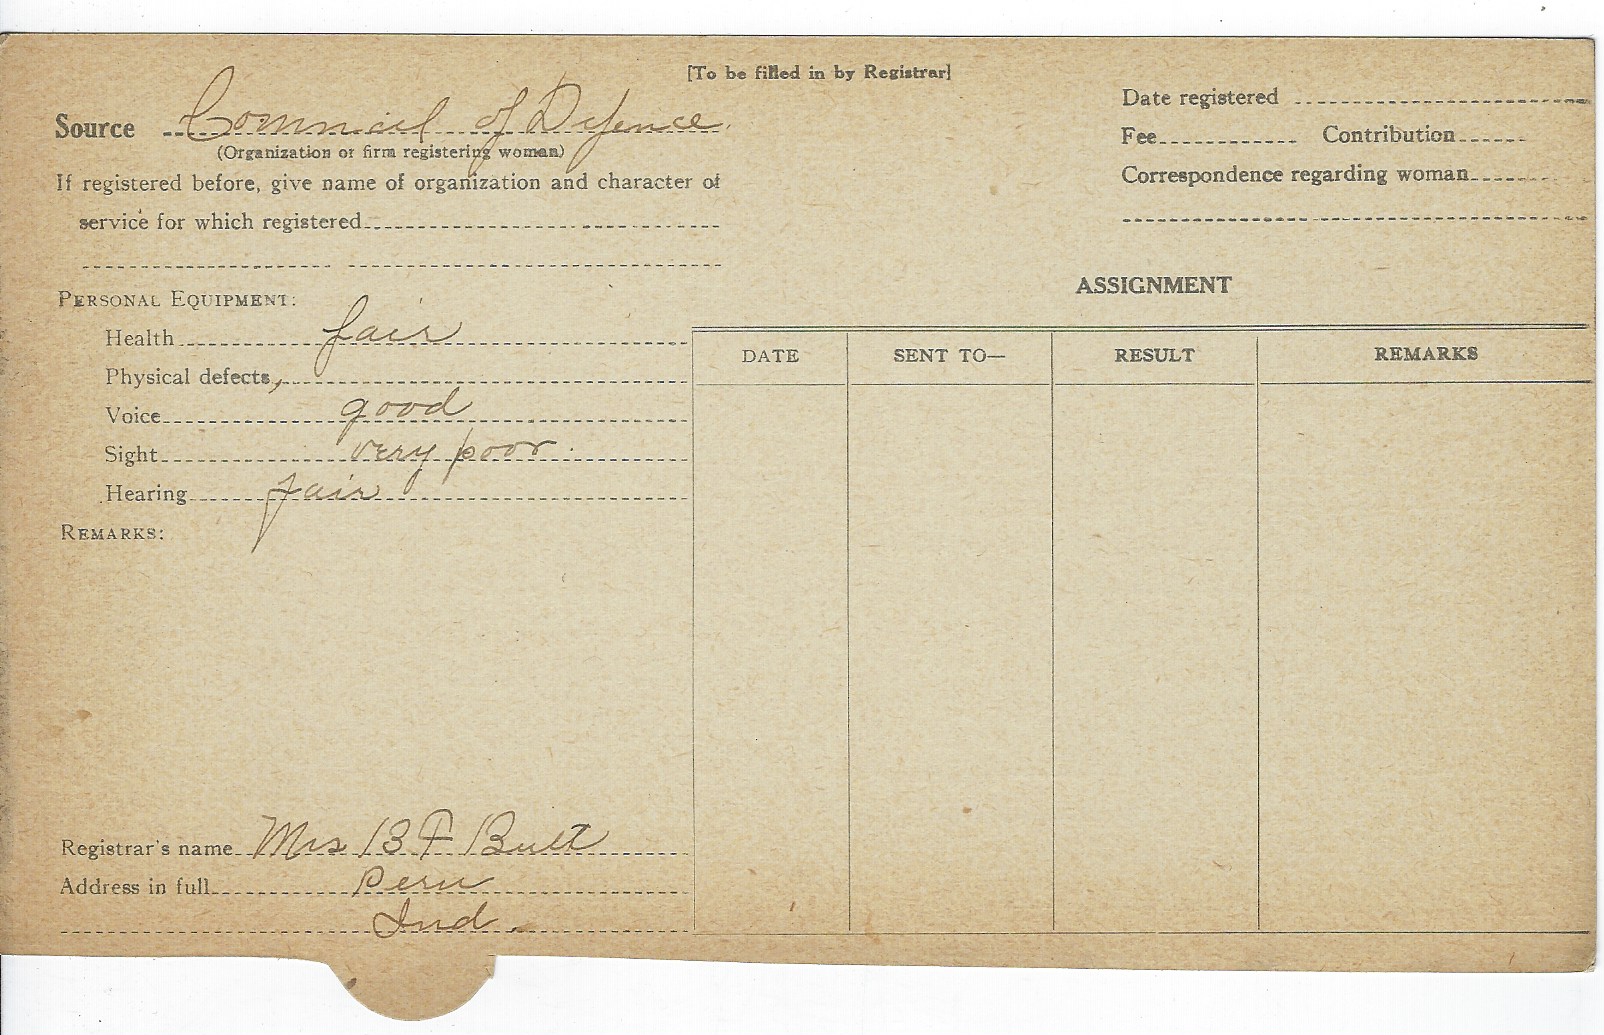 [To be filled in by Registrar]
Source Council of Defence.
(Organization or firm registering woman)
If registered before, give name of organization and character of
service for which registered
Date registered
Fee Contribution
Correspondence regarding woman
PERSONAL EQUIPMENT:
Health fair
Physical defects,
Voice good
Sight very poor.
Hearing fair
REMARKS:
ASSIGNMENT
DATE SENT TO— RESULT REMARKS
Registrar's name Mrs B F Bult
Address in full Peru
Ind.